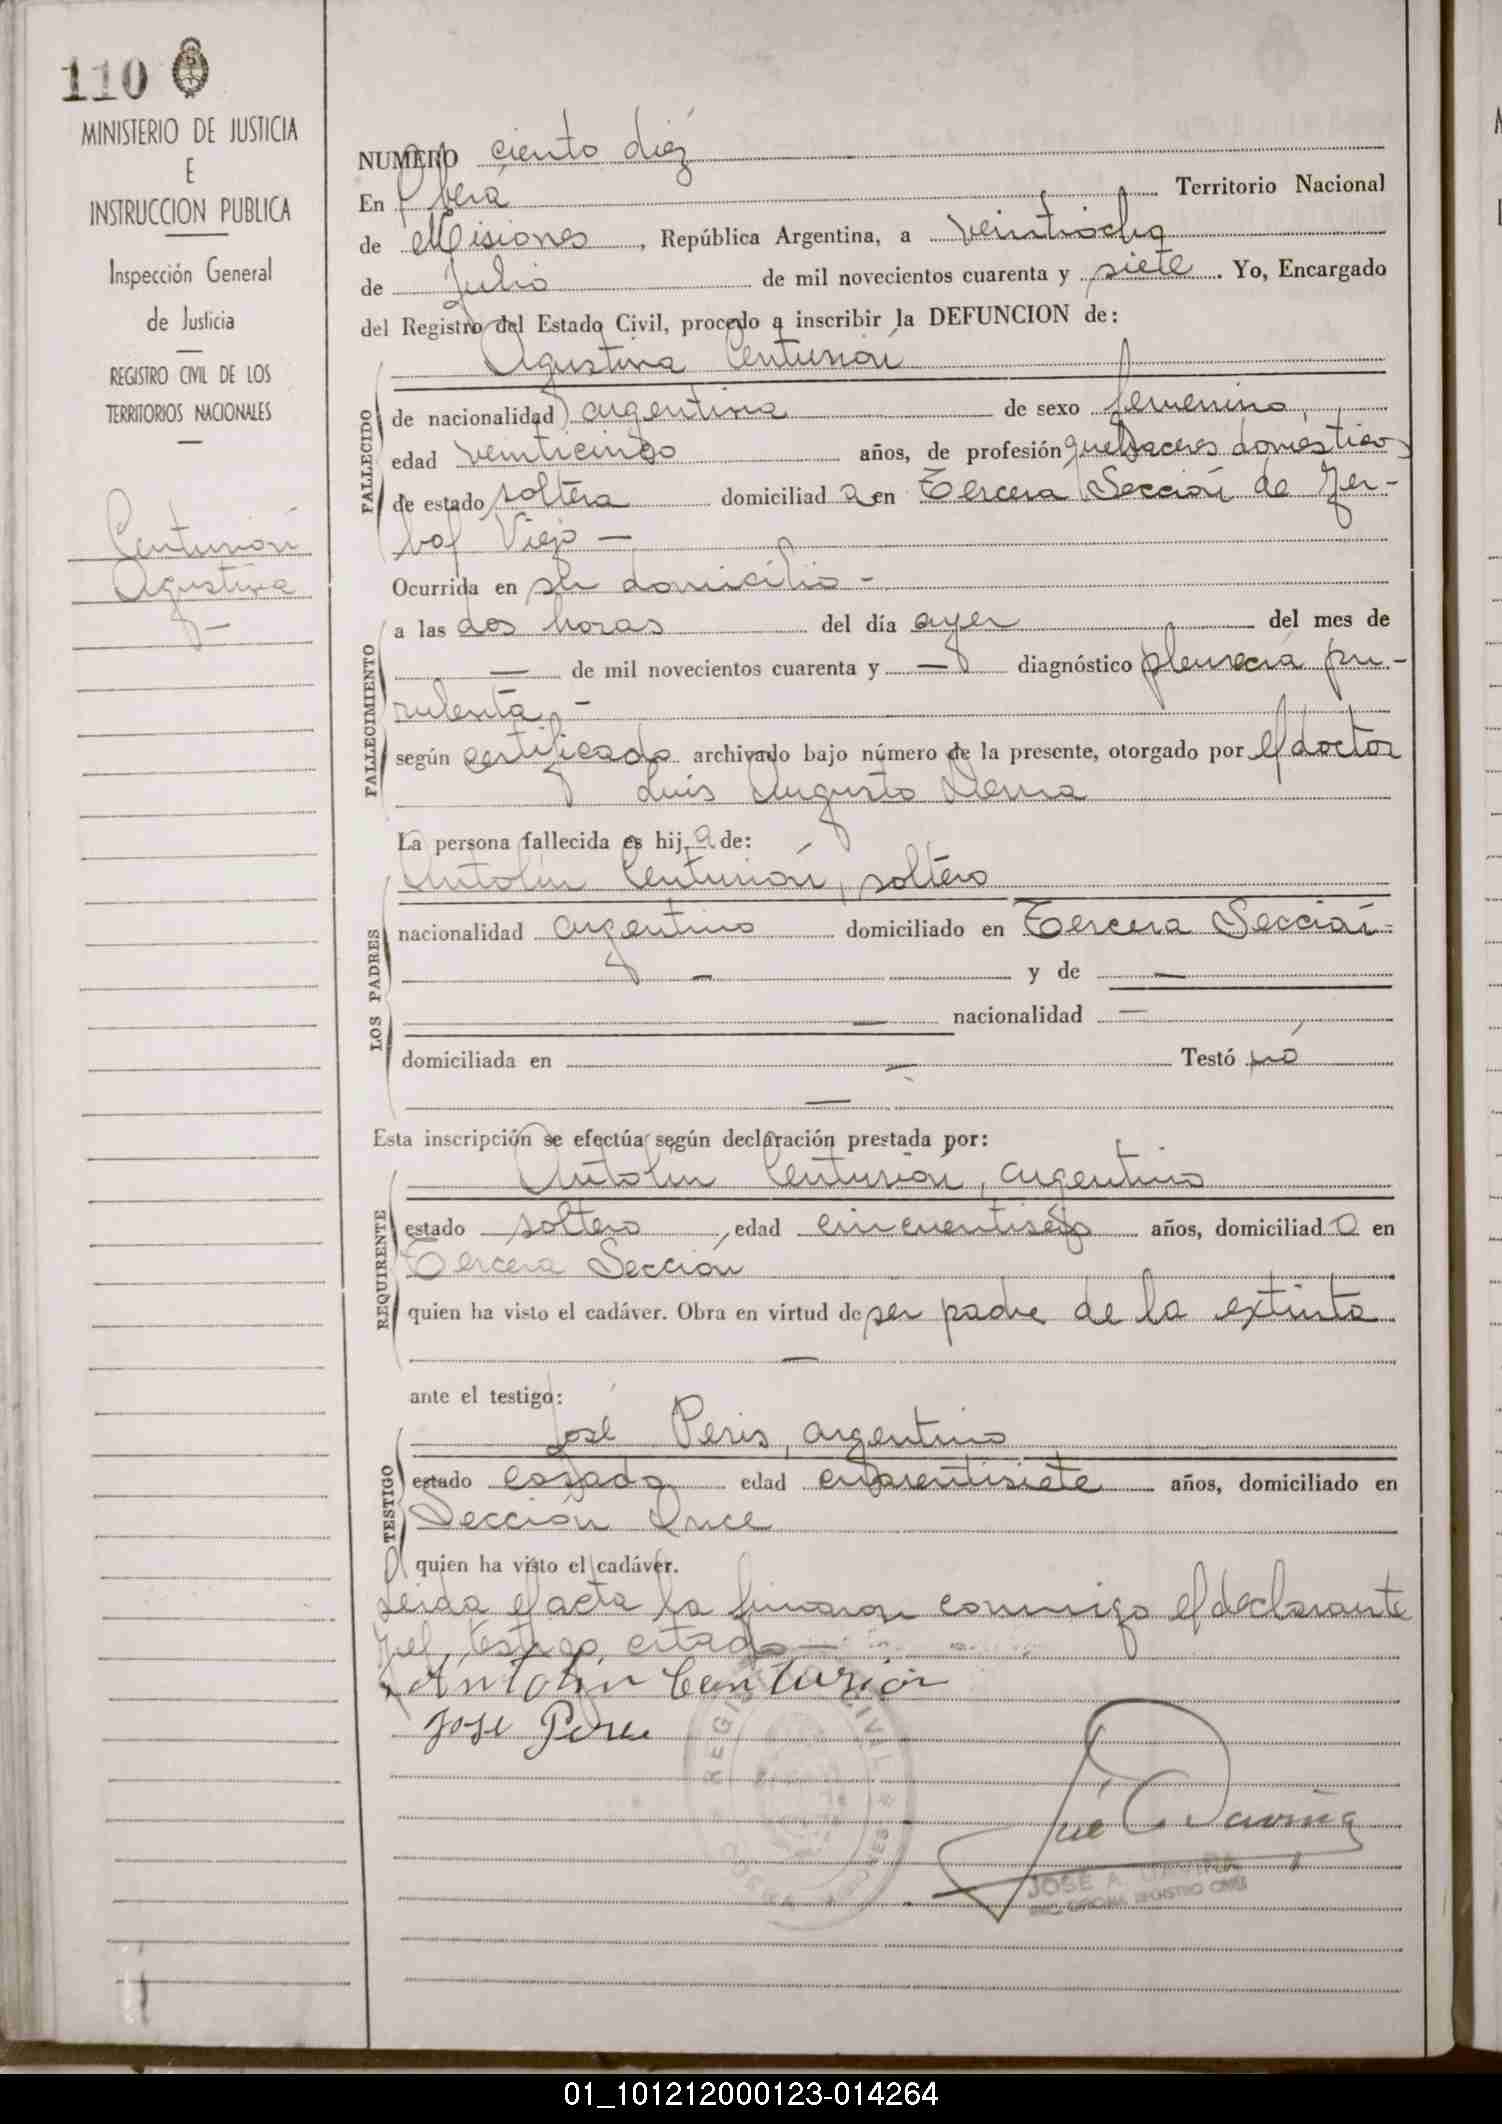 110
MINISTERIO DE JUSTICIA
E
INSTRUCCION PUBLICA
Inspección General
de Justicia
REGISTRO CIVIL DE LOS
TERRITORIOS NACIONALES
Centurión
Agustina
NUMERO ciento diez
En Oberá Territorio Nacional
de Misiones, República Argentina, a veintiocho
de Julio de mil novecientos cuarenta y siete. Yo, Encargado
del Registro del Estado Civil, procedo a inscribir la DEFUNCION de:
Agustina Centurión
FALLECIDO
de nacionalidad argentina de sexo femenino,
edad veinticinco años, de profesión quehaceres domésticos
de estado soltera domiciliad a en Tercera Sección de Yer-
bal Viejo —
Ocurrida en su domicilio -
FALLECIMIENTO
a las dos horas del día ayer del mes de
— de mil novecientos cuarenta y — diagnóstico pleuresía pu-
rulenta -
según certificado archivado bajo número de la presente, otorgado por el doctor
Luis Augusto
La persona fallecida es hij a de:
LOS PADRES
Antolín Centurión, soltero
nacionalidad argentino domiciliado en Tercera Sección-
— y de —
— nacionalidad —
domiciliada en — Testó nó
—
Esta inscripción se efectúa según declaración prestada por:
REQUIRENTE
Antolín Centurión, argentino
estado soltero, edad cincuentiséis años, domiciliad o en
Tercera Sección
quien ha visto el cadáver. Obra en virtud de ser padre de la extinta
—
ante el testigo:
TESTIGO
José Peris, argentino
estado casado edad cuarentisiete años, domiciliado en
Sección Once
quien ha visto el cadáver.
Leida el acta la firmaron conmigo el declarante
y el testigo citado —
Antolin Centurión
Jose
REGISTRO CIVIL
José A. Daviña
JOSE A. DAVIÑA
REGISTRO CIVIL
01_101212000123-014264